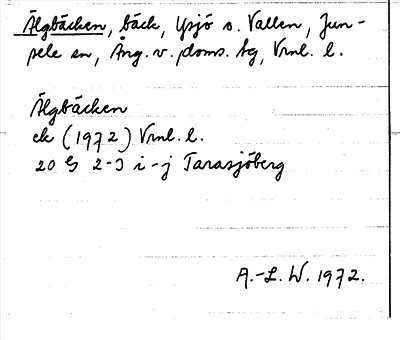 Älgbäcken, bäck, Ysjö o. Vallen, Jun-
sele sn, Ång. v. doms. tg, Vrnl. l.
Älgbäcken
ek (1972) Vrnl. l.
20 G 2-3 i-j Tarasjöberg
A.-L. W. 1972.